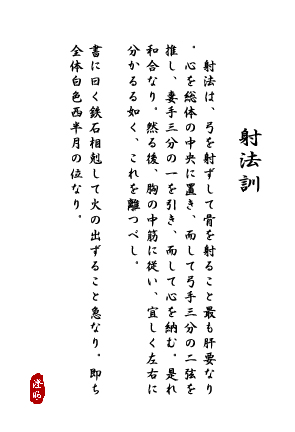 射法訓
射法は、弓を射ずして骨を射ること最も肝要なり
。心を総体の中央に置き、而して弓手三分の二弦を
推し、妻手三分の一を引き、而して心を納む。是れ
和合なり。然る後、胸の中筋に従い、宜しく左右に
分かるる如く、これを離つべし。
書に曰く鉄石相剋して火の出ずること急なり。即ち
全体白色西半月の位なり。